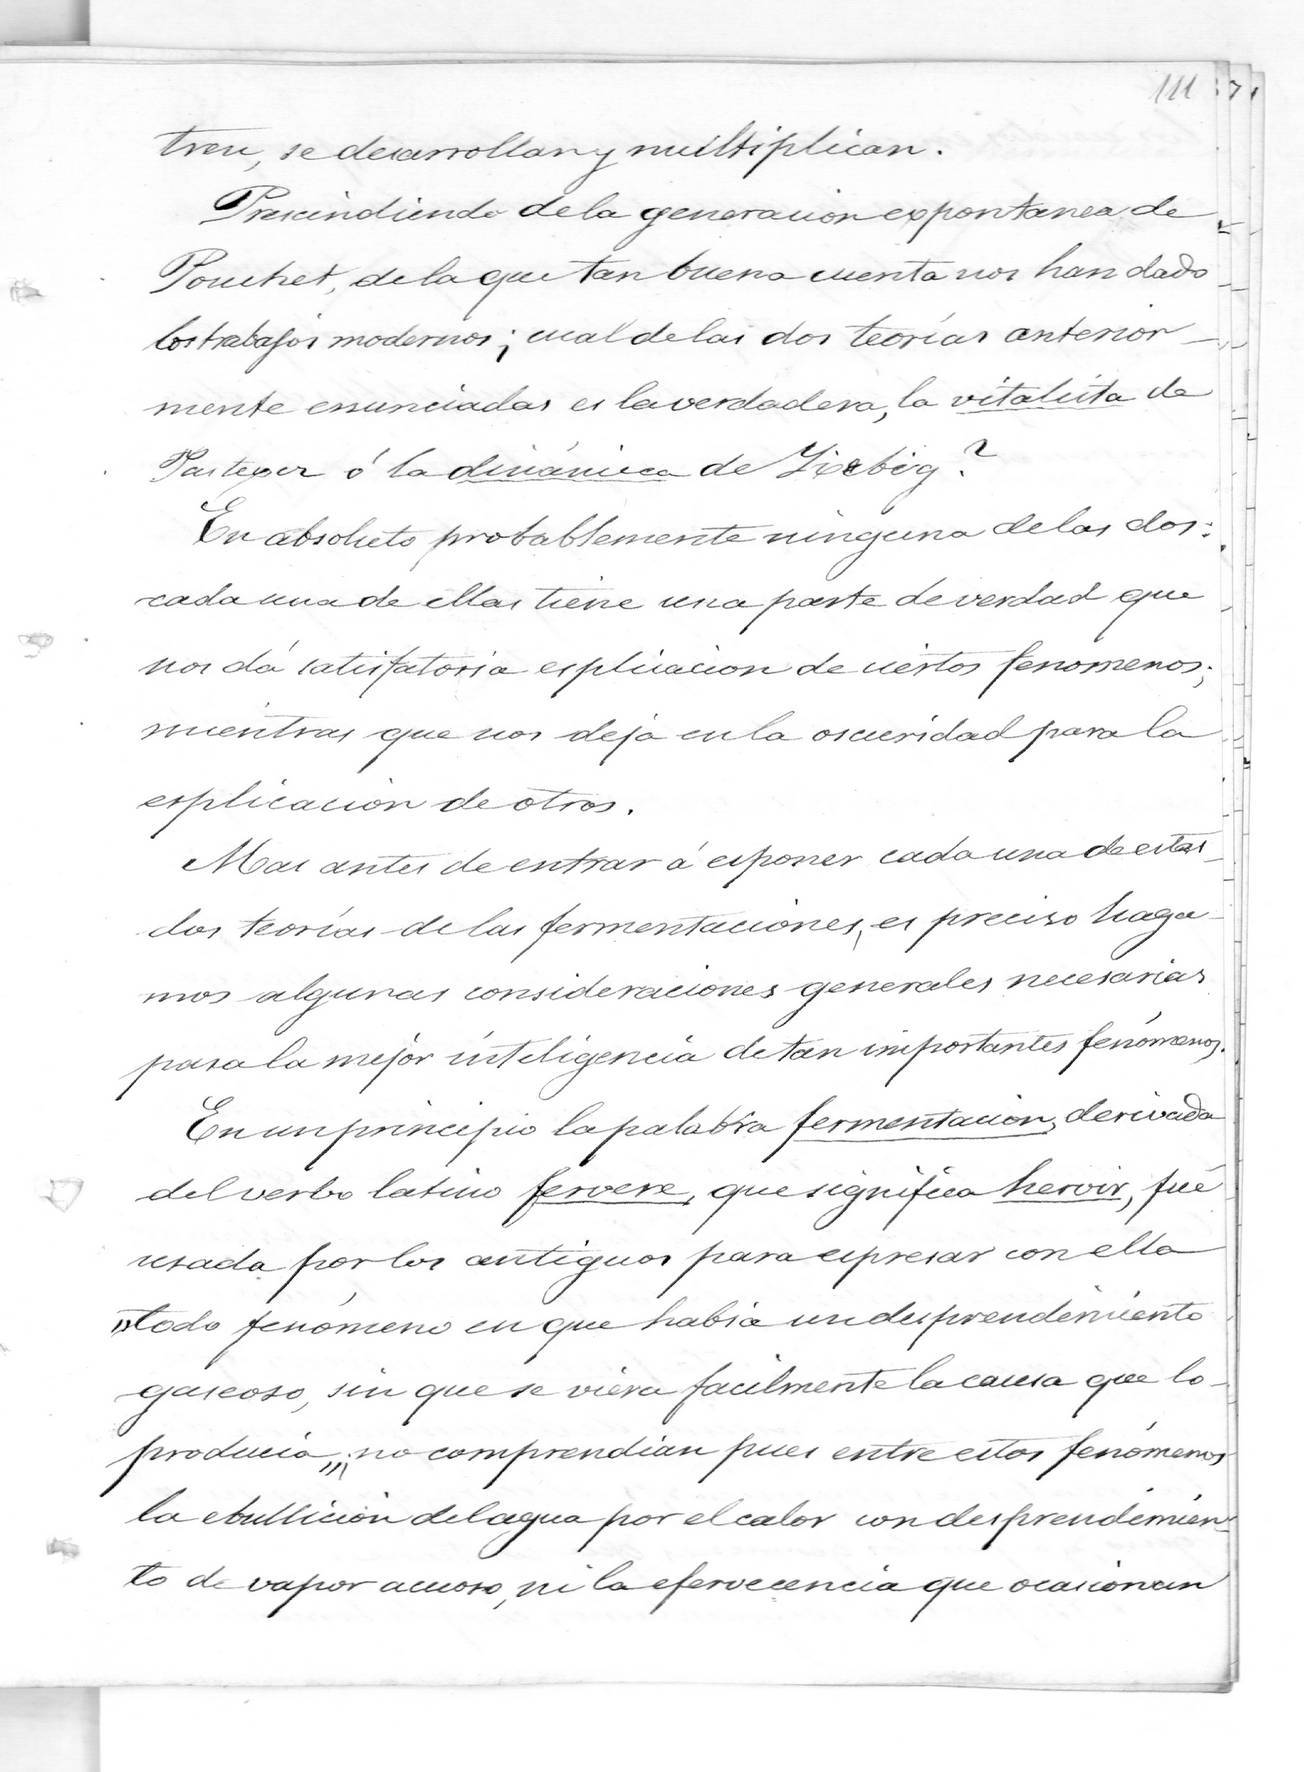 111
tren, se desarrollan y multiplican.
Prescindiendo de la generacion expontanea de
Pouchet, de la que tan buena cuenta nos han dado
los trabajos modernos; cual de las dos teorías anterior-
mente enunciadas es la verdadera, la vitalista de
Pasteur ó la dinámica de Liebig?
En absoluto probablemente ninguna de las dos:
cada una de ellas tiene una parte de verdad que
nos dá satisfatoria esplicacion de ciertos fenomenos;
mientras que nos deja en la oscuridad para la
esplicacion de otros.
Mas antes de entrar á esponer cada una de estas
dos teorías de las fermentaciones, es preciso haga-
mos algunas consideraciones generales necesarias
para la mejor inteligencia de tan importantes fenómenos.
En un principio la palabra fermentacion, derivada
del verbo latino fervere, que significa hervir, fué
usada por los antiguos para espresar con ella
"todo fenómeno en que habia un desprendimiento
gaseoso, sin que se viera facilmente la causa que lo
producia"; no comprendian pues entre estos fenómenos
la ebullicion del agua por el calor con desprendimien-
to de vapor acuoso, ni la efervecencia que ocasionan